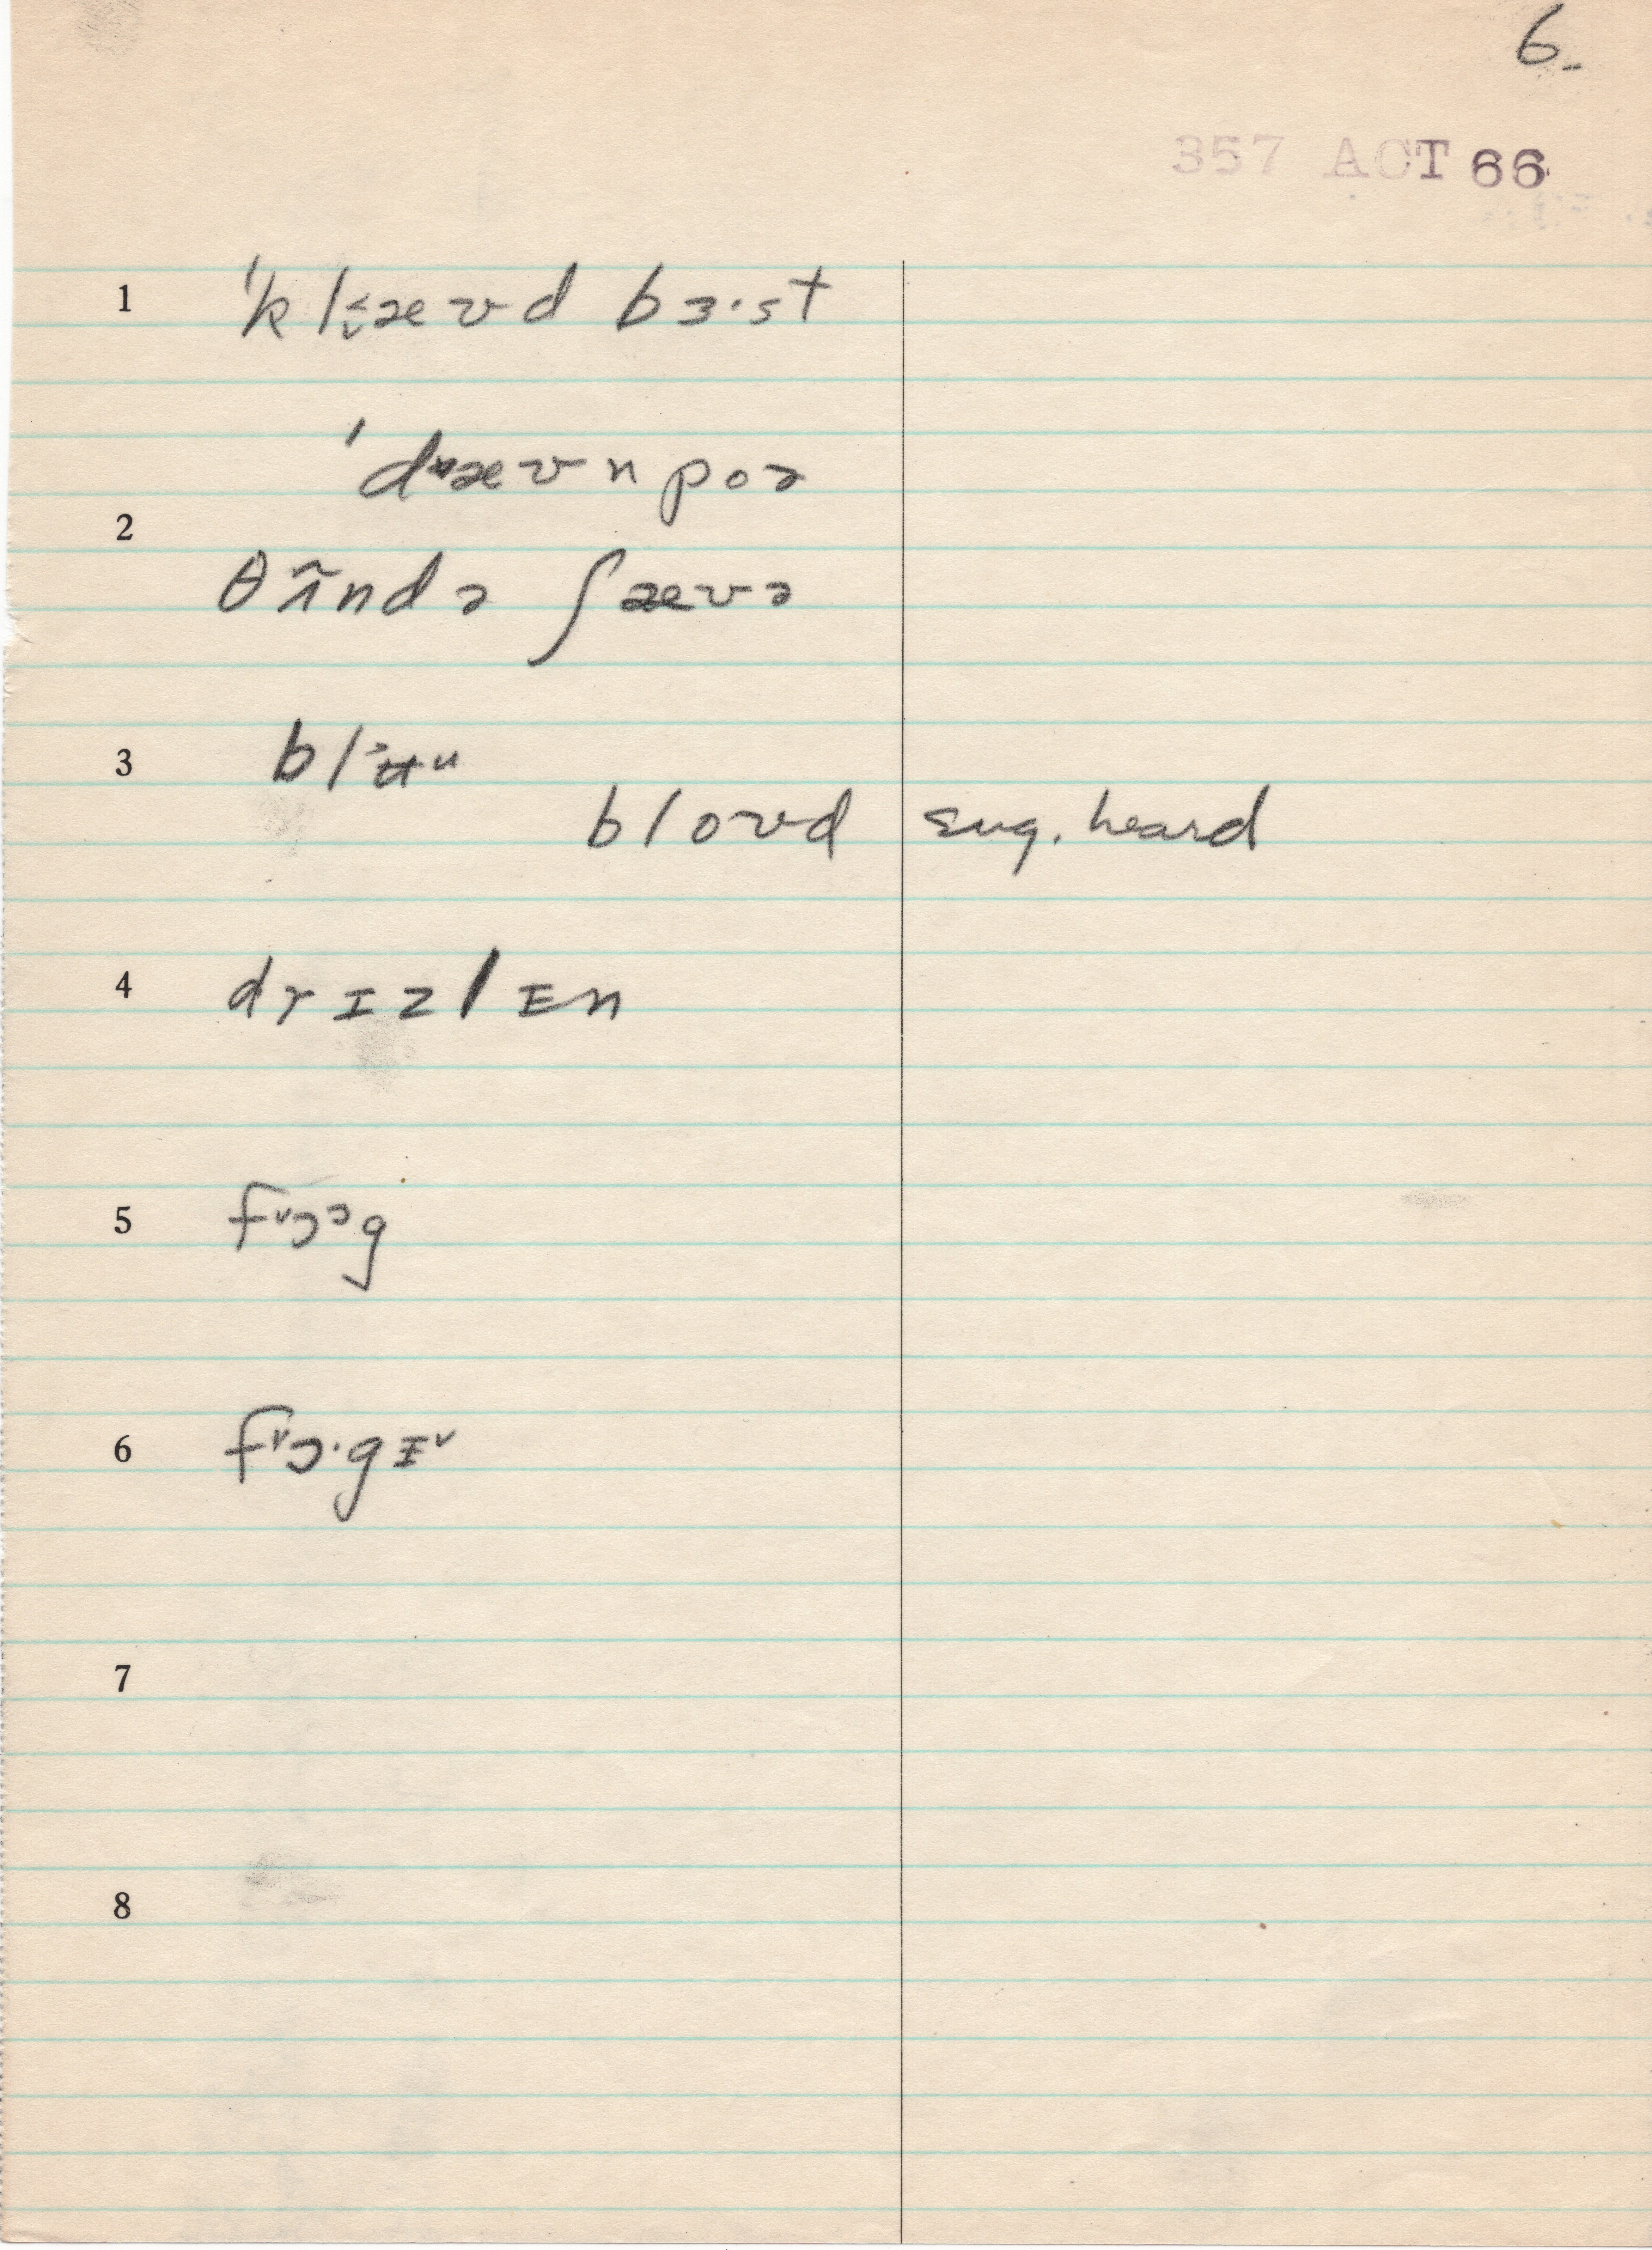 6.
357 ACT 66
1 ˈklæʊd bɜ·st
ˈdæʊnpoə
2
θʌ̃ndə ʃæʊə
3 blʉu
bloʊd sug. heard
4 drɪzlɪn
5 fɔɔg
6 fɔ·gɪ
7
8